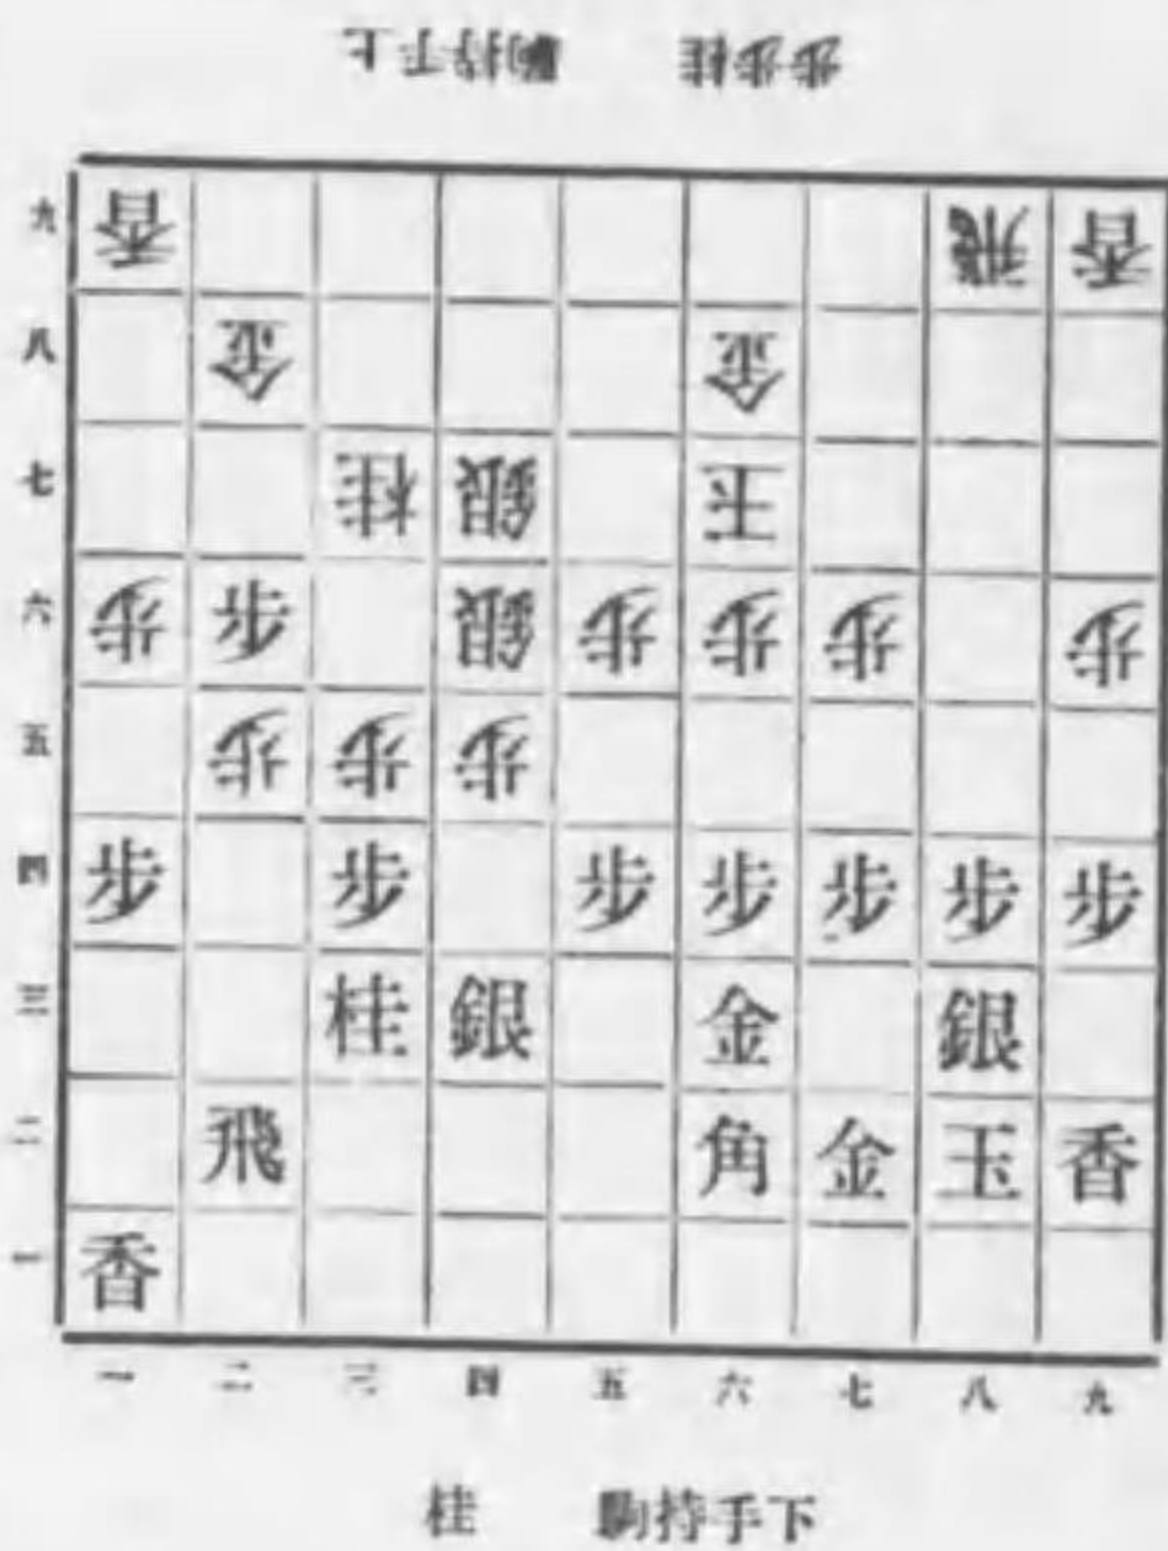 上手持駒 桂歩歩
九 香 飛 香
八 金 金
七 桂 銀 玉
六 歩 歩 銀 歩 歩 歩 歩
五 歩 歩 歩
四 歩 歩 歩 歩 歩 歩 歩
三 桂 銀 金 銀
二 飛 角 金 玉 香
一 香
一 二 三 四 五 六 七 八 九
下手持駒 桂